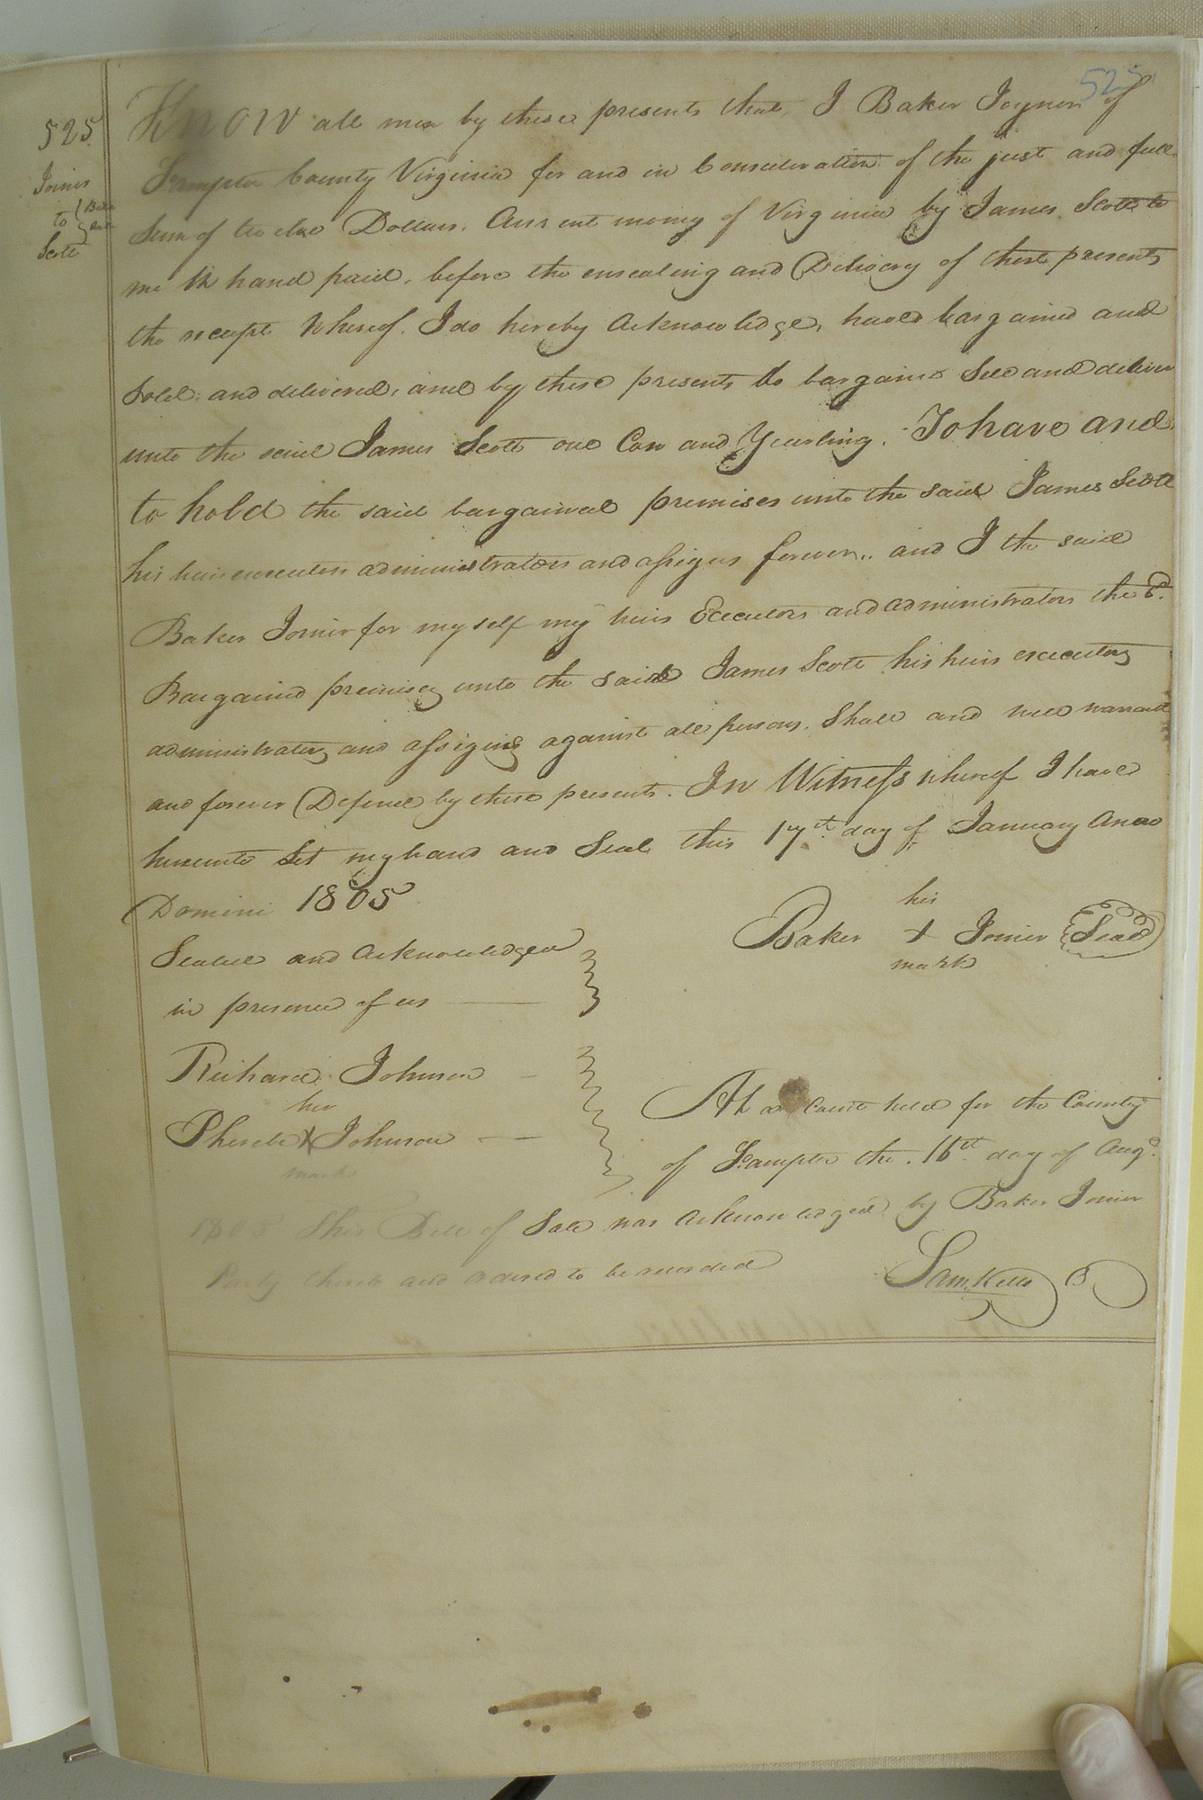 525
525
Joiner
to } Bill
Scott } Sale
Know all men by these presents that, I Baker Joyner of
Southampton County Virginia for and in Consideration of the just and full
Sum of twelve Dollars. Current money of Virginia by James Scott to
me in hand paid, before the ensealing and Delivery of these presents
the receipt whereof. I do hereby Acknowledge, have bargained and
Sold, and delivered, and by these presents do bargain Sell and deliver
unto the said James Scott one Cow and Yearling. To have and
to hold the said bargained premises unto the said James Scott
his heirs executors administrators and assigns forever.. and I the said
Baker Joiner for myself my heirs Executors and administrators the sd.
Bargained premises unto the said James Scott his heirs executors
administrators and assigns against all persons. Shall and will warrant
and forever Defend by these presents. In Witness whereof I have
hereunto Set my hand and Seal this 17th day of January Anno
Domini 1805
his
Baker + Joiner Seal
mark
Sealed and Acknowledged
in presence of us
Richard Johnson
her
+ Johnson
mark
At a Court held for the County
of Southampton the 16th day of Augt.
1805 This Bill of Sale was Acknowledged by Baker Joiner
Party thereto and ordered to be recorded
Sam. Kello